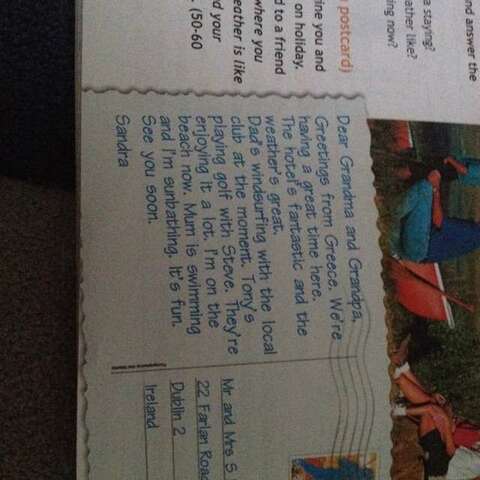 nd answer the
a staying?
ather like?
ing now?
postcard)
ine you and
on holiday.
d to a friend
where you
eather is like
d your
(50-60
Dear Grandma and Grandpa,
Greetings from Greece. We're
having a great time here.
The hotel's fantastic and the
weather's great.
Dad's windsurfing with the local
club at the moment. Tony's
playing golf with Steve. They're
enjoying it a lot. I'm on the
beach now. Mum is swimming
and I'm sunbathing. It's fun.
See you soon.
Sandra
Mr and Mrs S
22 Farlan Road
Dublin 2
Ireland